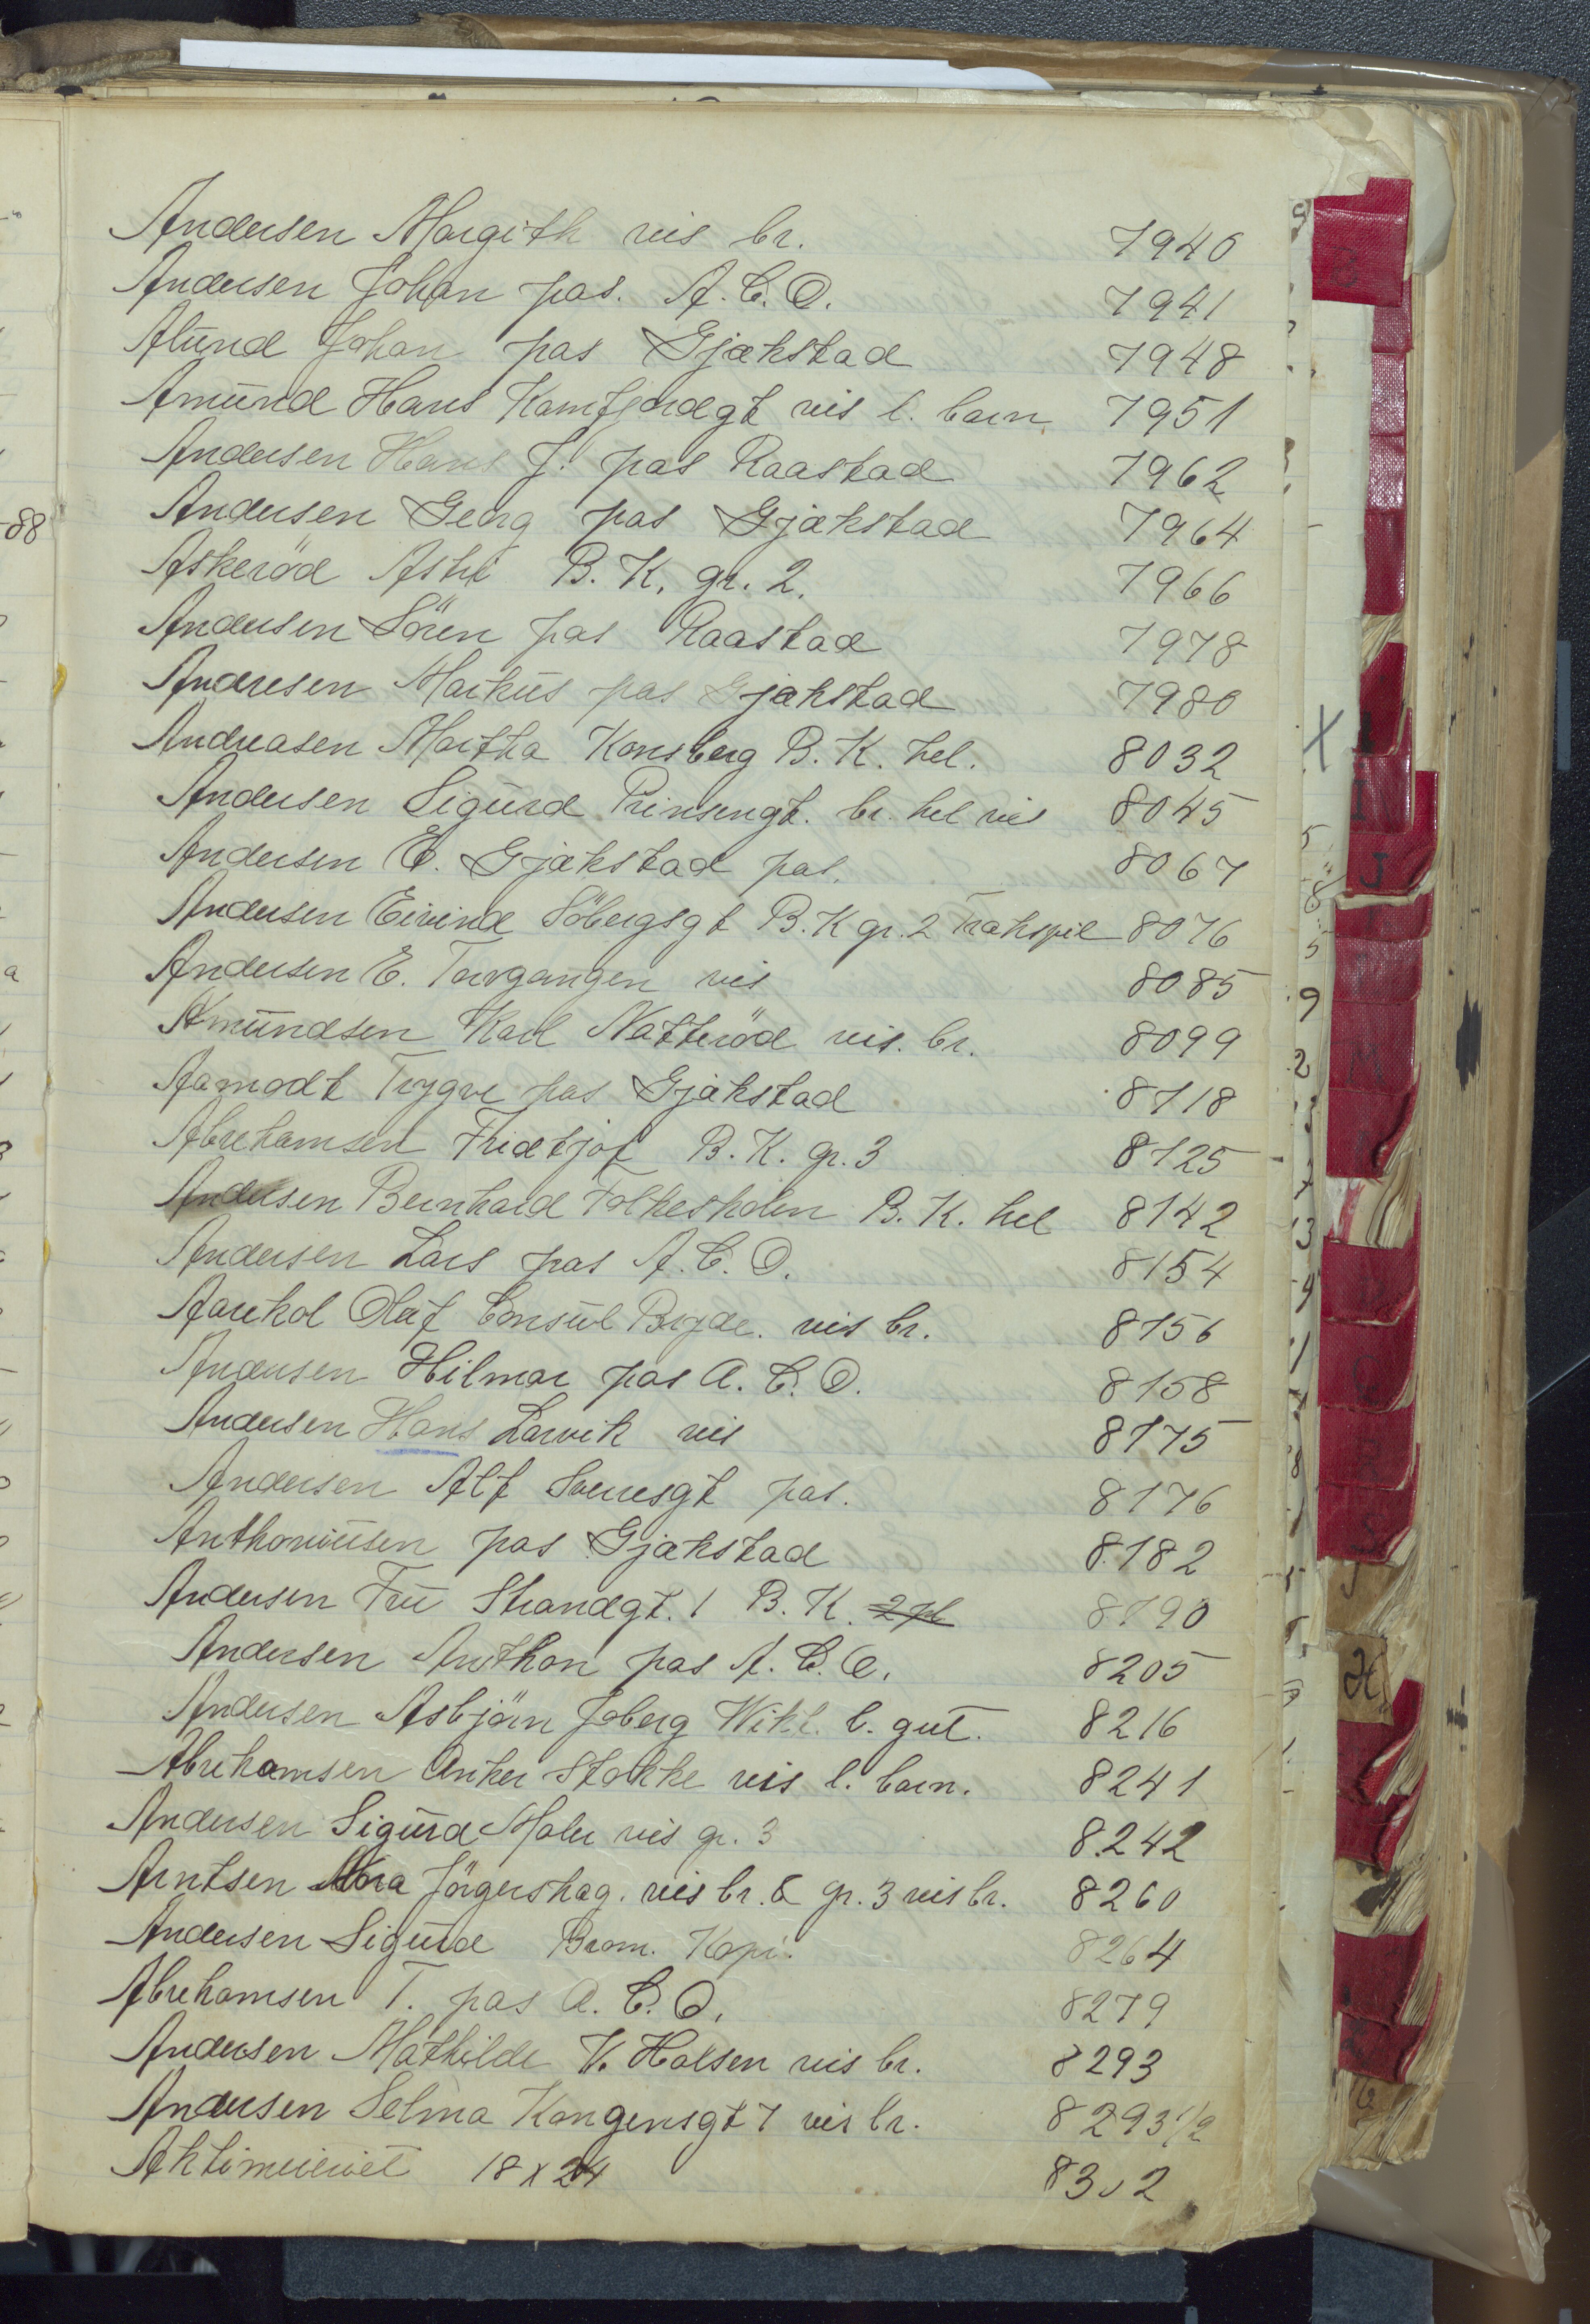 Andersen Margith vis br. 7940
Andersen Johan pas. A.C.O. 7941
Alund Johan pas Gjakstad 7948
Amund Hans Kamfjordgt vis l. barn 7951
Andersen Hans J. pas Raastad 7962
Andersen Georg pas Gjakstad 7964
Askeröd B. K. gr. 2. 7966
Andersen Sören pas Raastad 7978
Andresen Markus pas Gjakstad 7980
Andreasen Martha Konsberg B. K. hel. 8032
Andersen Sigurd Prinsengt. br. hel vis 8045
Andersen E. Gjakstad pas. 8067
Andersen Eivind Söbergsgt B. K gr. 2 Trakspil 8076
Andersen E. Torvgangen vis 8085
Amundsen Karl Natteröd vis. br. 8099
Aamodt Trygve pas Gjakstad 8118
Abrehamsen Fridtjof B. K. gr. 3 8125
Andersen Bernhard B. K. hel 8142
Andersen Lars pas A. C. O. 8154
Olaf Consul Bryde. vis br. 8156
Andersen Hilmar pas A. C. O. 8158
Andersen Hans Larvik vis 8175
Andersen Alf Sverresgt pas. 8176
Anthoniusen pas Gjakstad 8182
Andersen Fru Strandgt. 1 B. K. 8190
Andersen Anthon pas A. C. O. 8205
Andersen Asbjörn Joberg l. gut. 8216
Abrehamsen Anker Stokke vis l. barn. 8241
Andersen Sigurd Maler vis gr. 3 8242
Arntsen Nora Jörgershag. vis br. & gr. 3 vis br. 8260
Andersen Sigurd Brom. Kopi. 8264
Abrehamsen T. pas A. C. O. 8279
Andersen Mathilde V. Halsen vis br. 8293
Andersen Selma Kongensgt 7 vis br. 8293 1/2
18 x 24 8302
-88
B
J
M
R
H